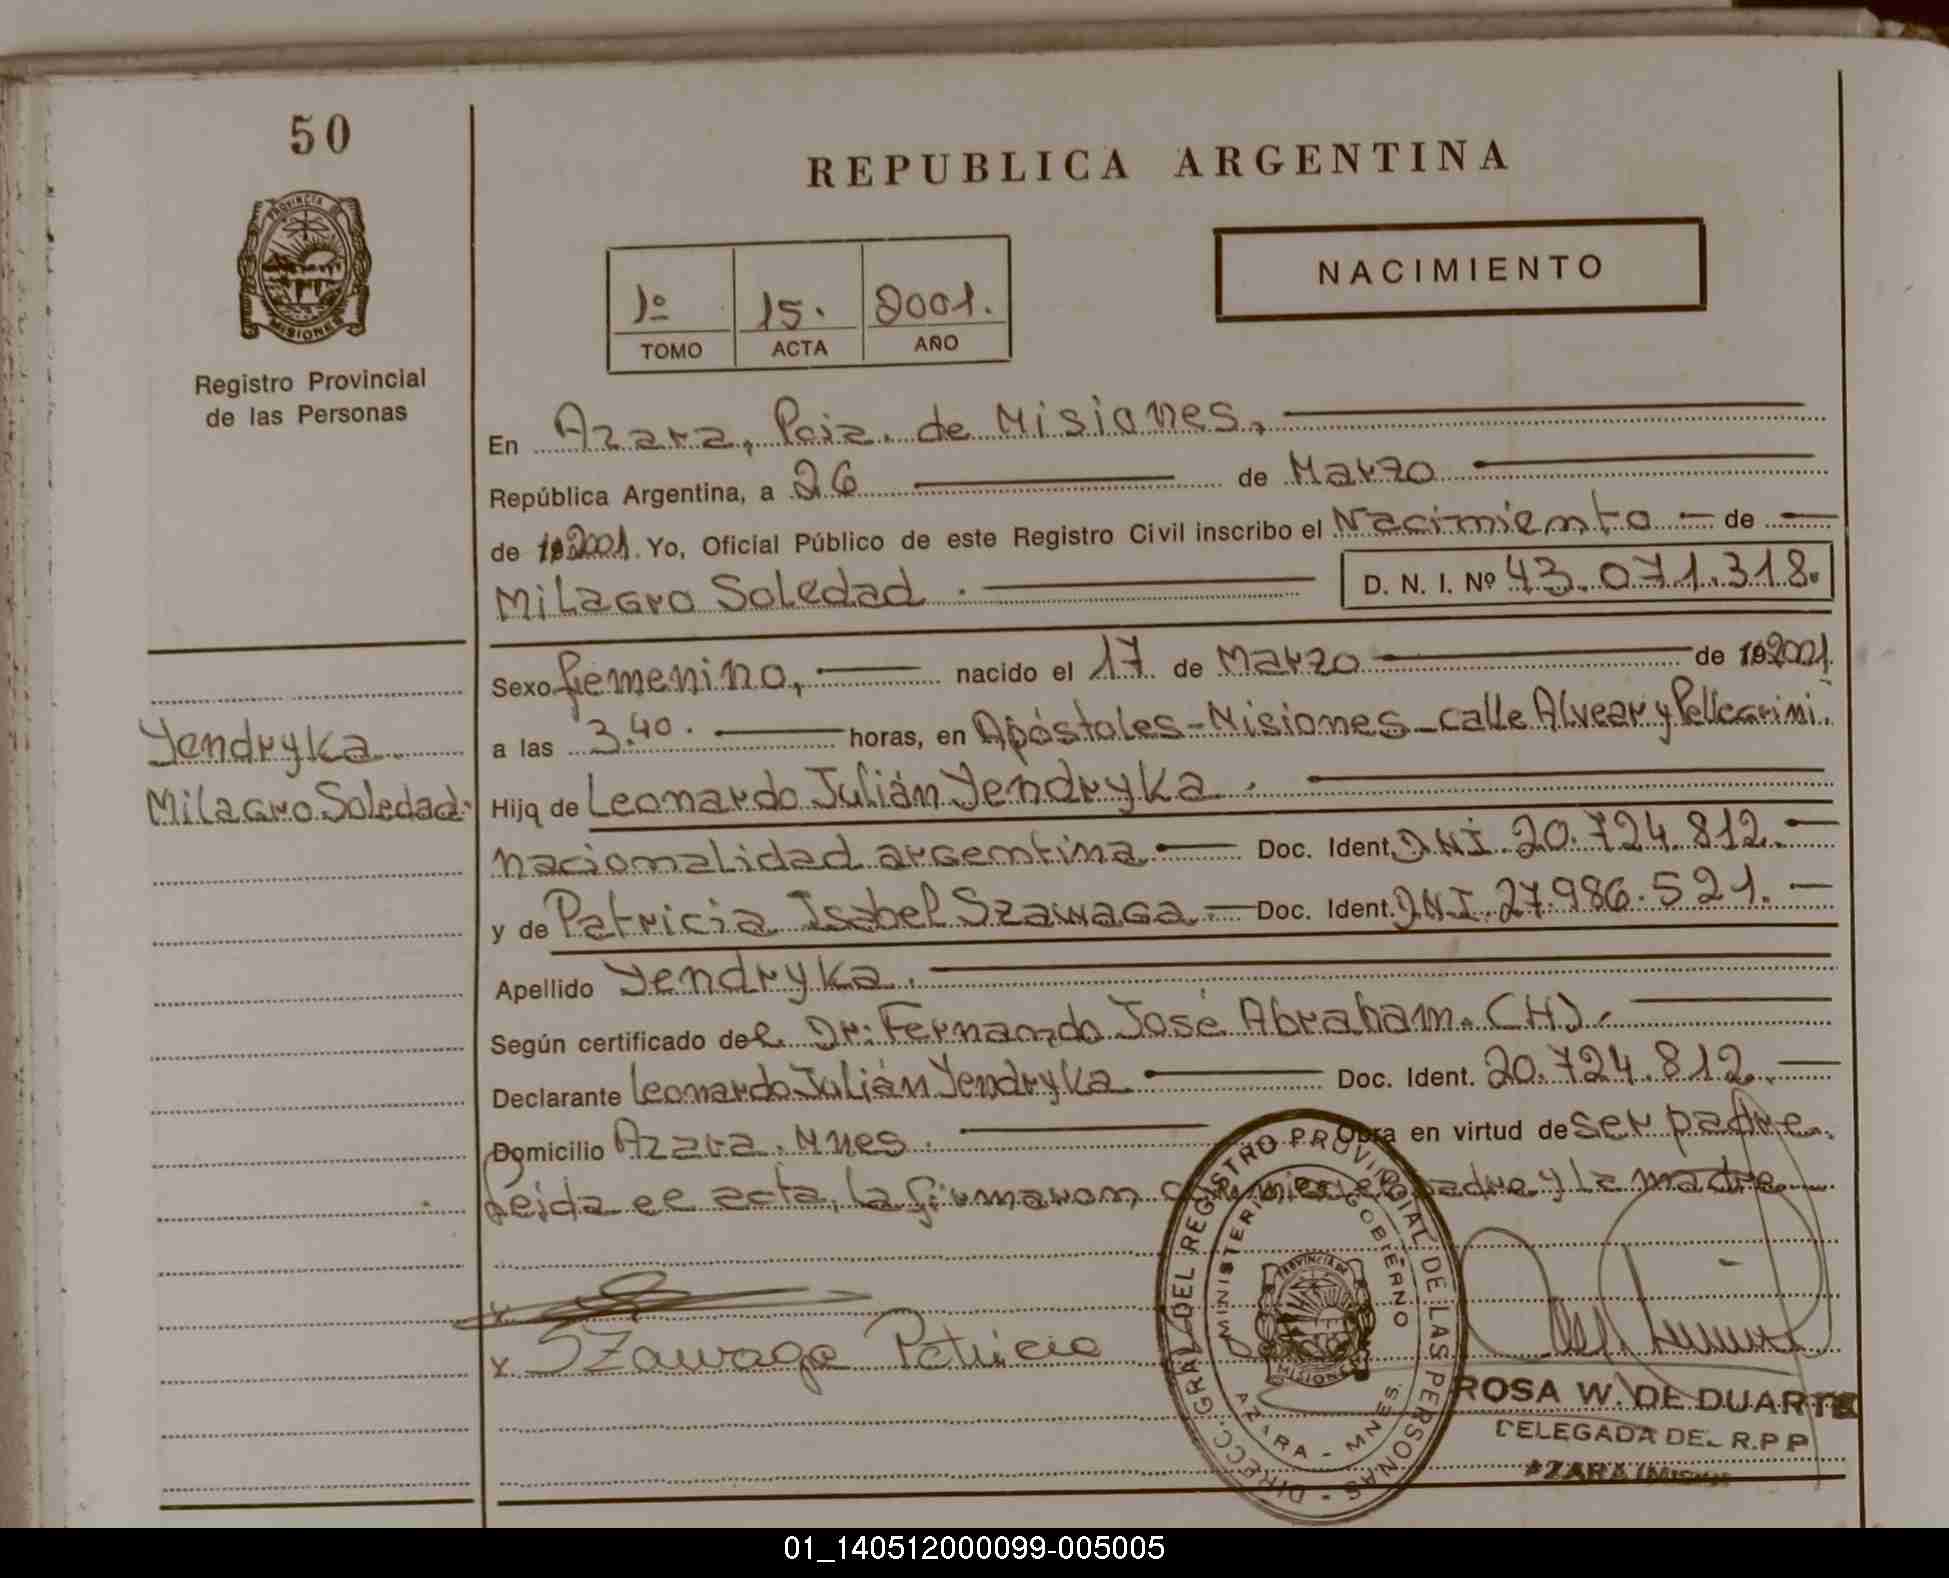 50
PROVINCIA DE
MISIONES
Registro Provincial
de las Personas
REPUBLICA ARGENTINA
NACIMIENTO
1º 15. 2001.
TOMO ACTA AÑO
En Azara, Pcia. de Misiones,
República Argentina, a 26 de Marzo
de 2001. Yo, Oficial Público de este Registro Civil inscribo el Nacimiento de
Milagro Soledad. D. N. I. Nº 43.071.318.
Sexo femenino, nacido el 17 de Marzo de 2001.
a las 3.40. horas, en Apóstoles - Misiones - calle Alvear y Pellegrini.
Yendryka
Milagro Soledad.
Hija de Leonardo Julián Yendryka.
nacionalidad argentina Doc. Ident. DNI. 20.724.812.
y de Patricia Isabel Szawaga. Doc. Ident. DNI. 27.986.521.
Apellido Yendryka.
Según certificado del Dr: Fernando José Abraham. (H).
Declarante Leonardo Julián Yendryka Doc. Ident. 20.724.812.
Domicilio Azara. Mnes. Obra en virtud de ser padre.
Leida el acta, la firmaron padre y la madre.
x
x Szawaga Patricia
DIRECC. GRAL DEL REGISTRO PROVINCIAL DE LAS PERSONAS
MINISTERIO DE GOBIERNO
PROVINCIA DE
MISIONES
AZARA - MNES.
ROSA W. DE DUARTE
DELEGADA DEL R.P.P
AZARA
01_140512000099-005005